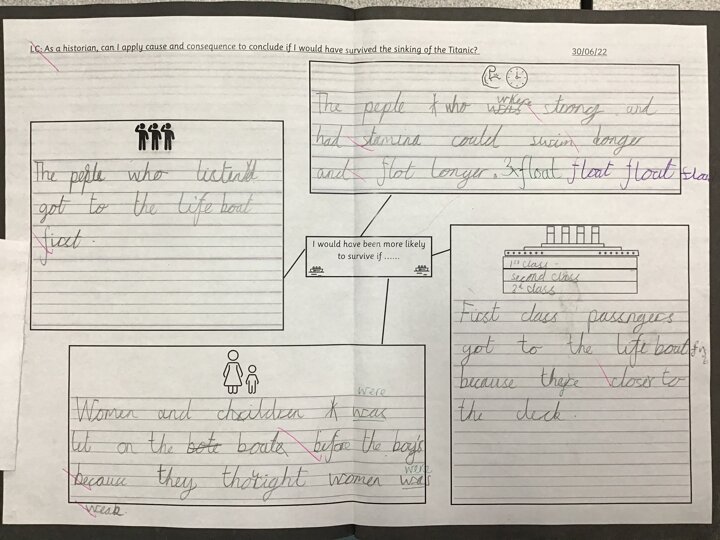 LC: As a historian, can I apply cause and consequence to conclude if I would have survived the sinking of the Titanic?
30/06/22
The peple who were strong and
had stamina could swim longer
and flot longer. 3x float float float float
The peple who listend
got to the life boat
first.
I would have been more likely
to survive if ......
1st class
second class
3rd class
First class passngers
got to the life boat
because there closer to
the deck.
were
Women and children was
let on the bote boats before the boys
were
because they thought women was
weak